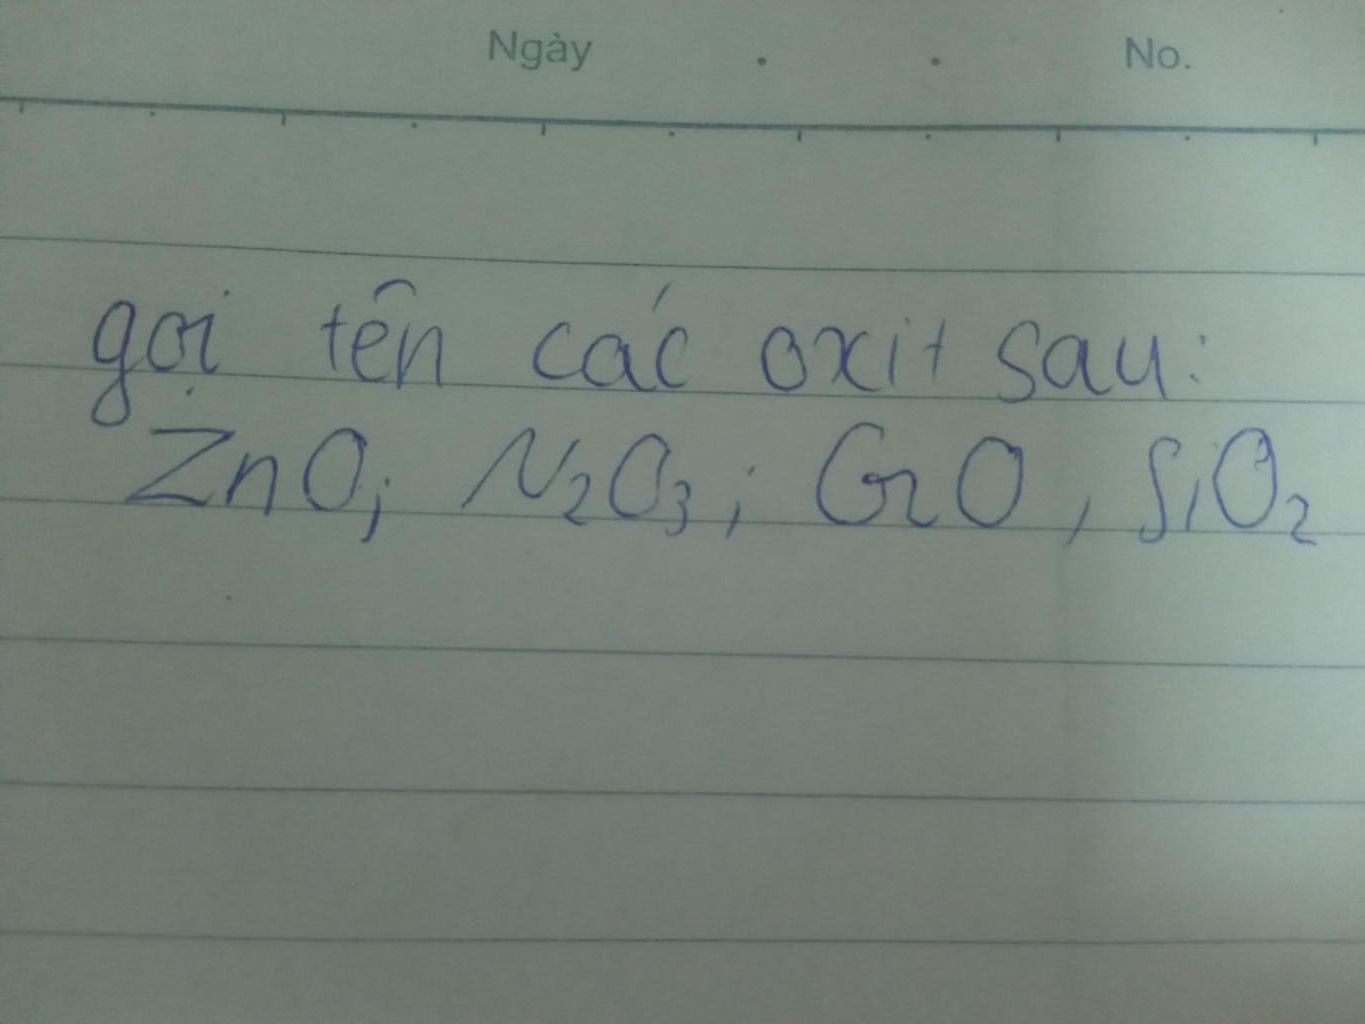 Ngày . . No.
gọi tên các oxit sau:
ZnO; N₂O₃; CrO, SiO₂